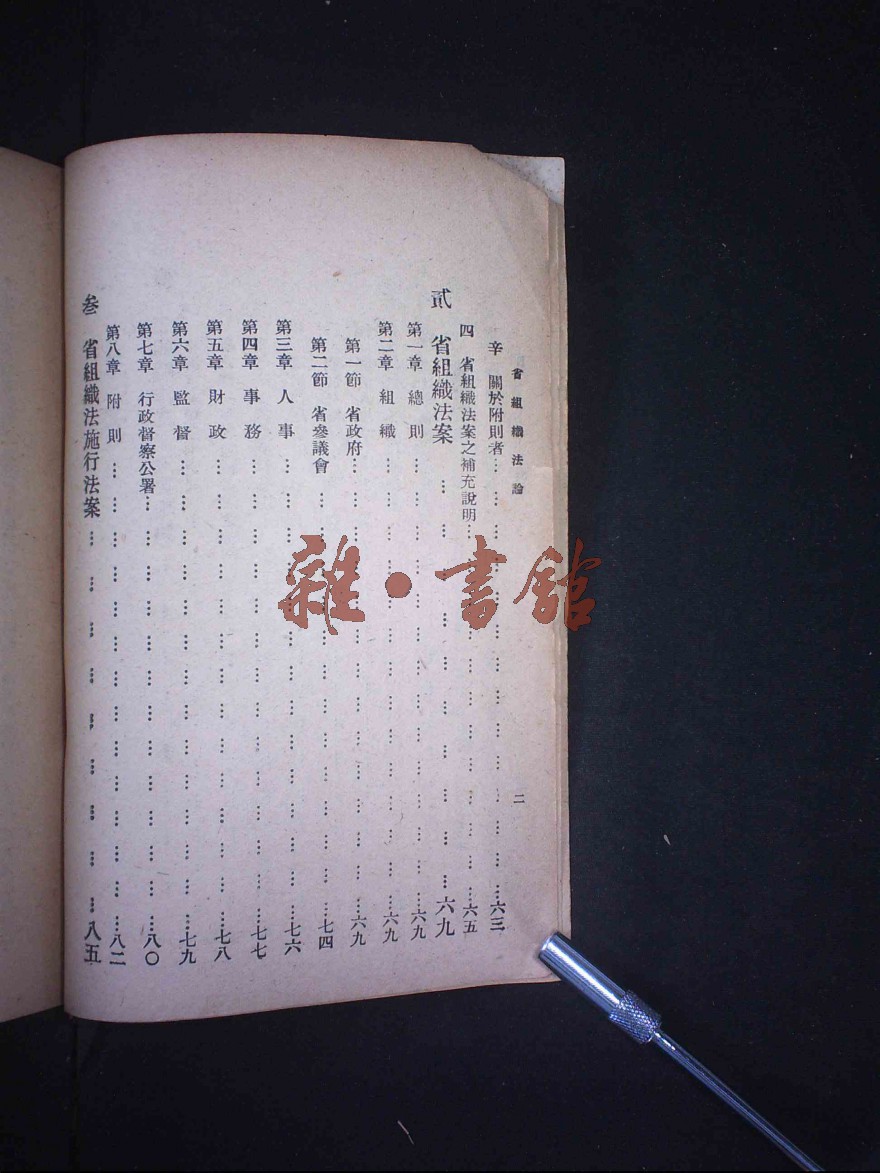 省組織法論
二
辛 關於附則者……六三
四 省組織法案之補充說明……六五
貳 省組織法案……六九
第一章 總則……六九
第二章 組織……六九
第一節 省政府……六九
第二節 省參議會……七四
第三章 人事……七六
第四章 事務……七七
第五章 財政……七八
第六章 監督……七九
第七章 行政督察公署……八〇
第八章 附則……八二
叁 省組織法施行法案……八五
雜·書館